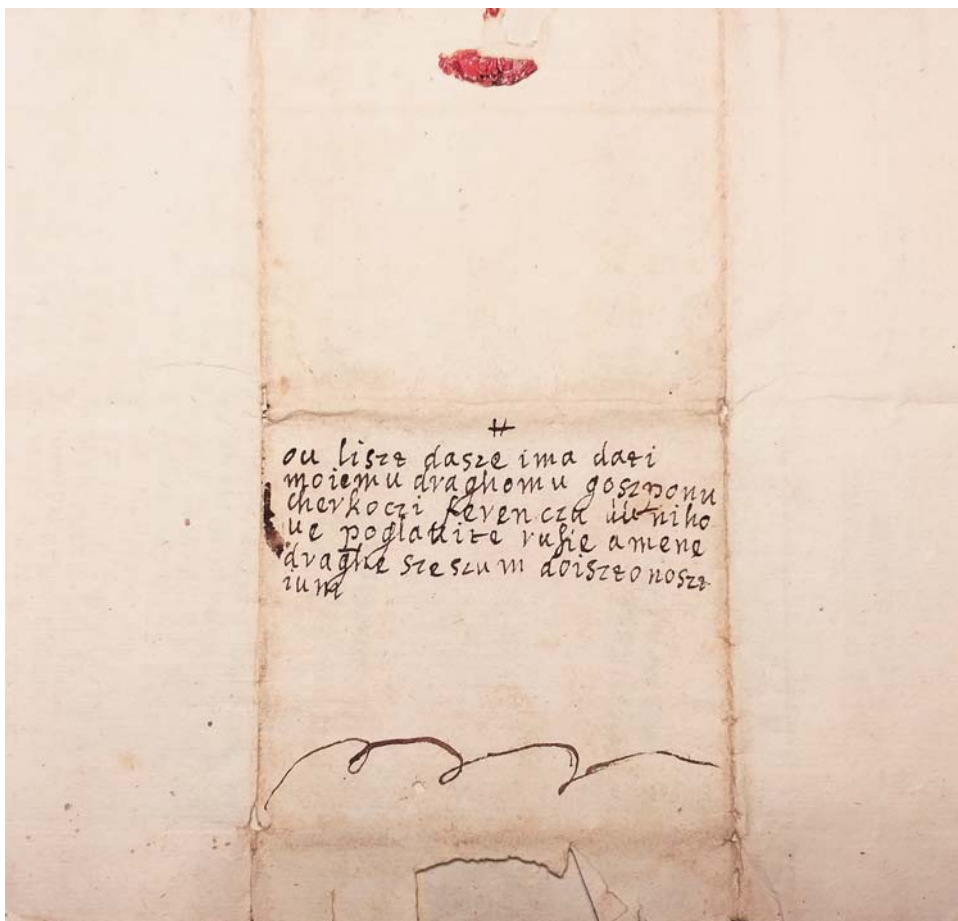 ou liszt dasze ima dati
moiemu draghomu goszponu
cherkoczi ferenczu uu niho
ue poglauite rusie amene
draghe szeszum doisztonoszt
ium